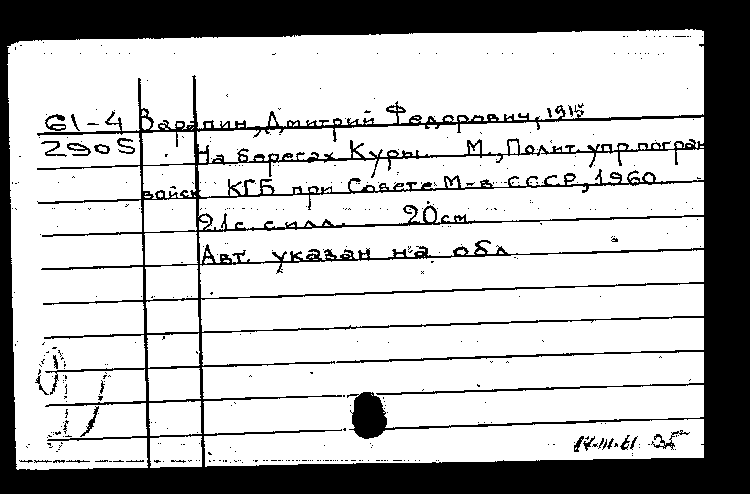 61-4 Варапин, Дмитрий Федорович, 1915
2905 На берегах Куры. М., Полит. упр. погран
войск КГБ при Совете М-в СССР, 1960.
91с. с илл. 20см
Авт. указан на обл
17-III-61